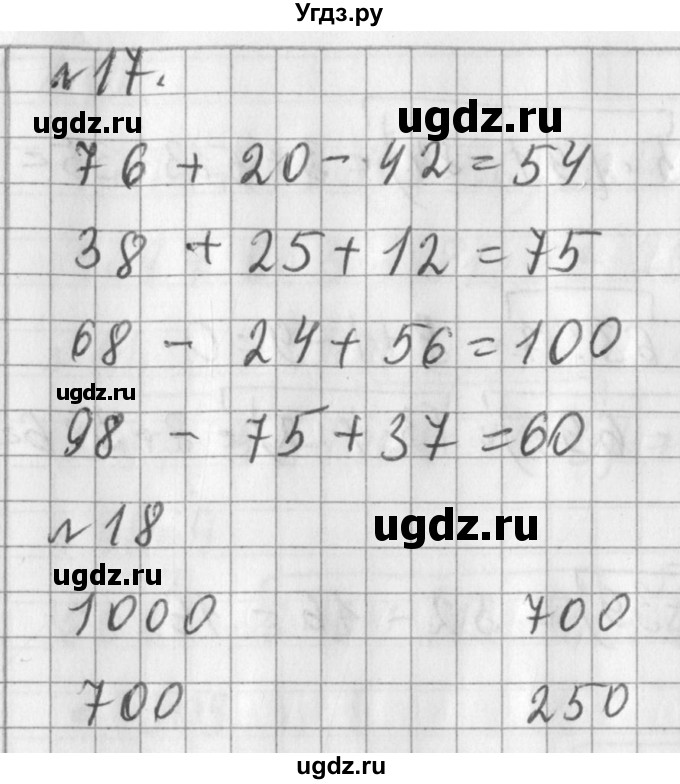 Угдз.ру
№17.
ugdz.ru ugdz.ru
76 + 20 - 42 = 54
38 + 25 + 12 = 75
68 - 24 + 56 = 100
ugdz.ru
98 - 75 + 37 = 60
№18
ugdz.ru
ugdz.ru
1000 700
700 250
ugdz.ru